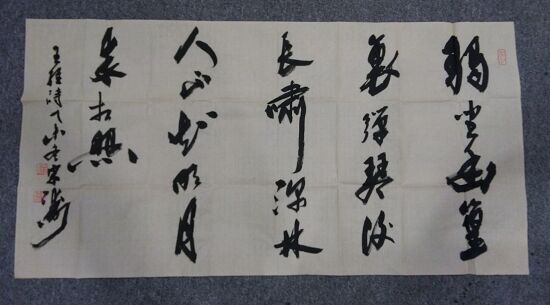 獨坐幽篁
裏彈琴復
長嘯深林
人不知明月
来相照
王維詩